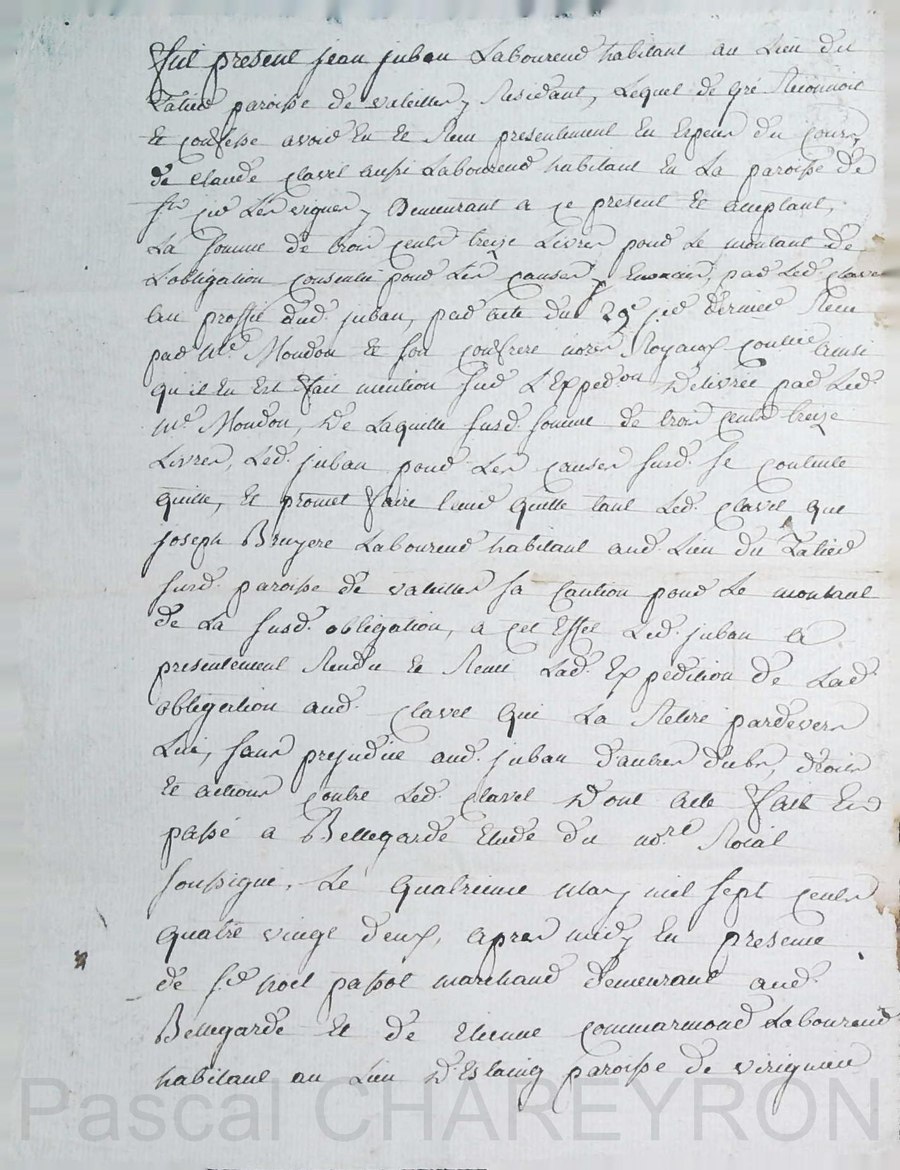 Fut present jean juban Laboureur habitant au Lieu du
Talier paroisse de valeille y Residant, Lequel de gré Reconnoit
et confesse avoir Eu et Recu presentement En Especes du Cours
de Claude Clavel aussi Laboureur habitant En La paroisse de
st cir Les vignes y Demeurant a ce present et aceptant,
La somme de trois cents treize Livres pour Le montant de
L'obligation consentie pour Les causes y Enoncées, par Led. clavel
au proffit dud. juban, par acte du 29e Recu
par Me Moudon et son confrere nores Royaux ainsi
qu'il En Est fait mention sur L'Expedon Delivrée par Led.
Me Moudon, De Laquelle susd. somme de trois cents treize
Livres, Led. juban pour Les causes susd. se contente
quitte, et promet faire tenir quitte tant Led. clavel que
joseph Bruyere Laboureur habitant aud. Lieu du Talier
susd. paroisse de valeille sa Caution pour Le montant
de La susd. obligation, a cet Effet Led. juban a
presentement Rendu et Remis Lad. Expedition de Lad.
obligation aud. Clavel qui La Retire pardevers
Lui, sans prejudice aud. juban d'autres dubs, droits
et actions contre Led. clavel Dont acte fait Et
passé a Bellegarde Etude du nore Roial
soussigné, Le quatrieme may mil sept cents
quatre vingt deux, apres midy En presence
de sr noel passot marchand demeurant aud.
Bellegarde et de Etienne commarmond Laboureur
habitant au Lieu D'Estaing paroisse de virignieu
Pascal CHAREYRON